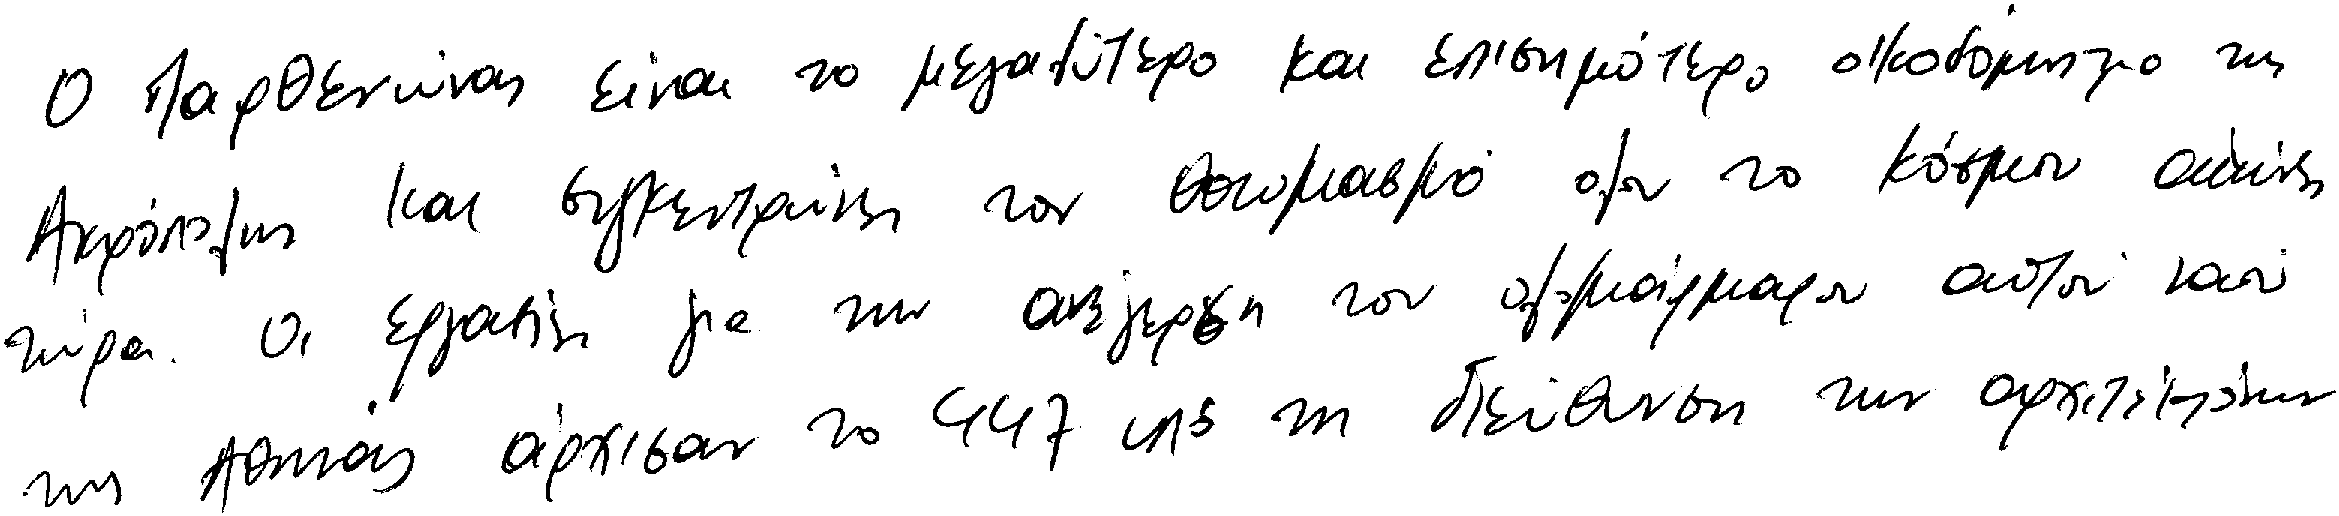 Ο Παρθενώνας είναι το μεγαλύτερο και επισημότερο οικοδόμημα της
Ακρόπολης και συγκεντρώνει τον θαυμασμό όλου το κόσμου αιώνες
τώρα. Οι εργασίες για την ανέγερση του ολομάρμαρου αυτού ναού
της Αθηνάς άρχισαν το 447 υπό τη διεύθυνση των αρχιτεκτόνων